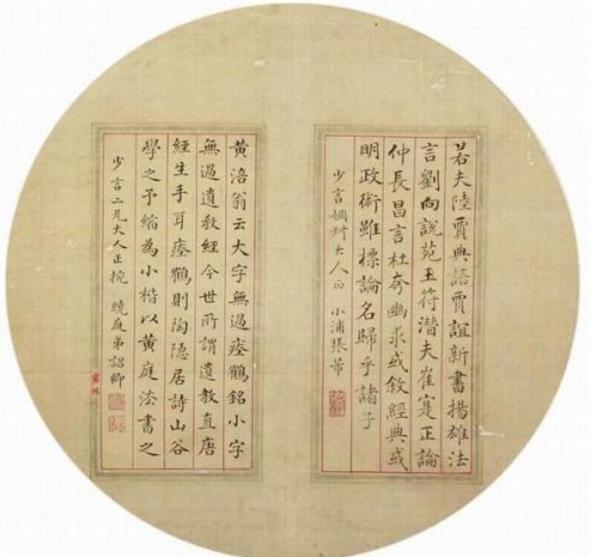 若夫陸賈典語賈誼新書揚雄法
言劉向說苑王符潛夫崔寔正論
仲長昌言杜夷幽求或敘經典或
明政術雖標論名歸乎諸子
少言姻大人正 小浦張芾
黄涪翁云大字無過瘞鶴銘小字
無過遺教經今世所謂遺教直唐
經生手耳瘞鶴則陶隱居詩山谷
學之予縮為小楷以黄庭法書之
少言二兄大人正捥 曉庭弟詔卿